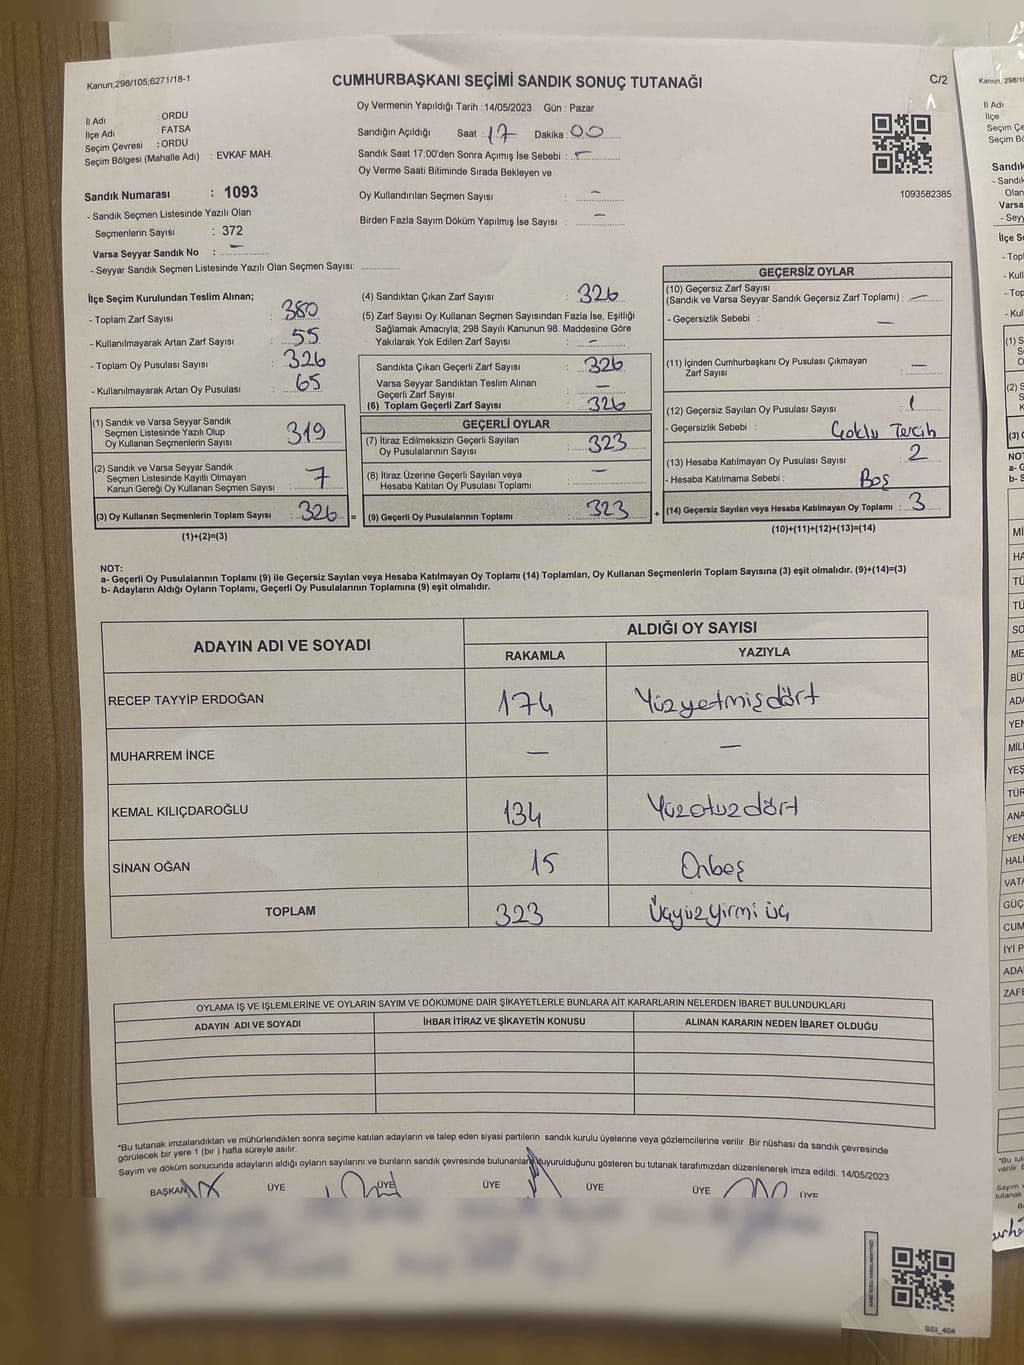 Kanun:298/105,6271/18-1
CUMHURBAŞKANI SEÇİMİ SANDIK SONUÇ TUTANAĞI
C/2
İl Adı : ORDU
İlçe Adı : FATSA
Seçim Çevresi : ORDU
Seçim Bölgesi (Mahalle Adı) : EVKAF MAH.
Oy Vermenin Yapıldığı Tarih : 14/05/2023 Gün : Pazar
Sandığın Açıldığı Saat : 17 Dakika : 00
Sandık Saat 17:00'den Sonra Açımış İse Sebebi : –
Oy Verme Saati Bitiminde Sırada Bekleyen ve
Oy Kullandırılan Seçmen Sayısı : –
Birden Fazla Sayım Döküm Yapılmış İse Sayısı : –
1093582385
Sandık Numarası : 1093
- Sandık Seçmen Listesinde Yazılı Olan
Seçmenlerin Sayısı : 372
Varsa Seyyar Sandık No : –
- Seyyar Sandık Seçmen Listesinde Yazılı Olan Seçmen Sayısı: ............
İlçe Seçim Kurulundan Teslim Alınan;
- Toplam Zarf Sayısı : 380
- Kullanılmayarak Artan Zarf Sayısı : 55
- Toplam Oy Pusulası Sayısı : 326
- Kullanılmayarak Artan Oy Pusulası : 65
(1) Sandık ve Varsa Seyyar Sandık
Seçmen Listesinde Yazılı Olup
Oy Kullanan Seçmenlerin Sayısı : 319
(2) Sandık ve Varsa Seyyar Sandık
Seçmen Listesinde Kayıtlı Olmayan
Kanun Gereği Oy Kullanan Seçmen Sayısı : 7
(3) Oy Kullanan Seçmenlerin Toplam Sayısı : 326 =
(1)+(2)=(3)
(4) Sandıktan Çıkan Zarf Sayısı : 326
(5) Zarf Sayısı Oy Kullanan Seçmen Sayısından Fazla İse, Eşitliği
Sağlamak Amacıyla; 298 Sayılı Kanunun 98. Maddesine Göre
Yakılarak Yok Edilen Zarf Sayısı : –
Sandıkta Çıkan Geçerli Zarf Sayısı : 326
Varsa Seyyar Sandıktan Teslim Alınan
Geçerli Zarf Sayısı : –
(6) Toplam Geçerli Zarf Sayısı : 326
GEÇERLİ OYLAR
(7) İtiraz Edilmeksizin Geçerli Sayılan
Oy Pusulalarının Sayısı : 323
(8) İtiraz Üzerine Geçerli Sayılan veya
Hesaba Katılan Oy Pusulası Toplamı : –
(9) Geçerli Oy Pusulalarının Toplamı : 323 +
GEÇERSİZ OYLAR
(10) Geçersiz Zarf Sayısı
(Sandık ve Varsa Seyyar Sandık Geçersiz Zarf Toplamı) : –
- Geçersizlik Sebebi : –
(11) İçinden Cumhurbaşkanı Oy Pusulası Çıkmayan
Zarf Sayısı : –
(12) Geçersiz Sayılan Oy Pusulası Sayısı : 1
- Geçersizlik Sebebi : Çoklu Tercih
(13) Hesaba Katılmayan Oy Pusulası Sayısı : 2
- Hesaba Katılmama Sebebi : Boş
(14) Geçersiz Sayılan veya Hesaba Katılmayan Oy Toplamı : 3
(10)+(11)+(12)+(13)=(14)
NOT:
a- Geçerli Oy Pusulalarının Toplamı (9) ile Geçersiz Sayılan veya Hesaba Katılmayan Oy Toplamı (14) Toplamları, Oy Kullanan Seçmenlerin Toplam Sayısına (3) eşit olmalıdır. (9)+(14)=(3)
b- Adayların Aldığı Oyların Toplamı, Geçerli Oy Pusulalarının Toplamına (9) eşit olmalıdır.
ADAYIN ADI VE SOYADI ALDIĞI OY SAYISI
RAKAMLA YAZIYLA
RECEP TAYYİP ERDOĞAN 174 Yüzyetmişdört
MUHARREM İNCE – –
KEMAL KILIÇDAROĞLU 134 Yüzotuzdört
SİNAN OĞAN 15 Onbeş
TOPLAM 323 Üçyüzyirmi üç
OYLAMA İŞ VE İŞLEMLERİNE VE OYLARIN SAYIM VE DÖKÜMÜNE DAİR ŞİKAYETLERLE BUNLARA AİT KARARLARIN NELERDEN İBARET BULUNDUKLARI
ADAYIN ADI VE SOYADI İHBAR İTİRAZ VE ŞİKAYETİN KONUSU ALINAN KARARIN NEDEN İBARET OLDUĞU
*Bu tutanak imzalandıktan ve mühürlendikten sonra seçime katılan adayların ve talep eden siyasi partilerin sandık kurulu üyelerine veya gözlemcilerine verilir .Bir nüshası da sandık çevresinde
görülecek bir yere 1 (bir ) hafta süreyle asılır.
Sayım ve döküm sonucunda adayların aldığı oyların sayılarını ve bunların sandık çevresinde bulunanlara duyurulduğunu gösteren bu tutanak tarafımızdan düzenlenerek imza edildi. 14/05/2023
BAŞKAN ÜYE ÜYE ÜYE ÜYE ÜYE ÜYE